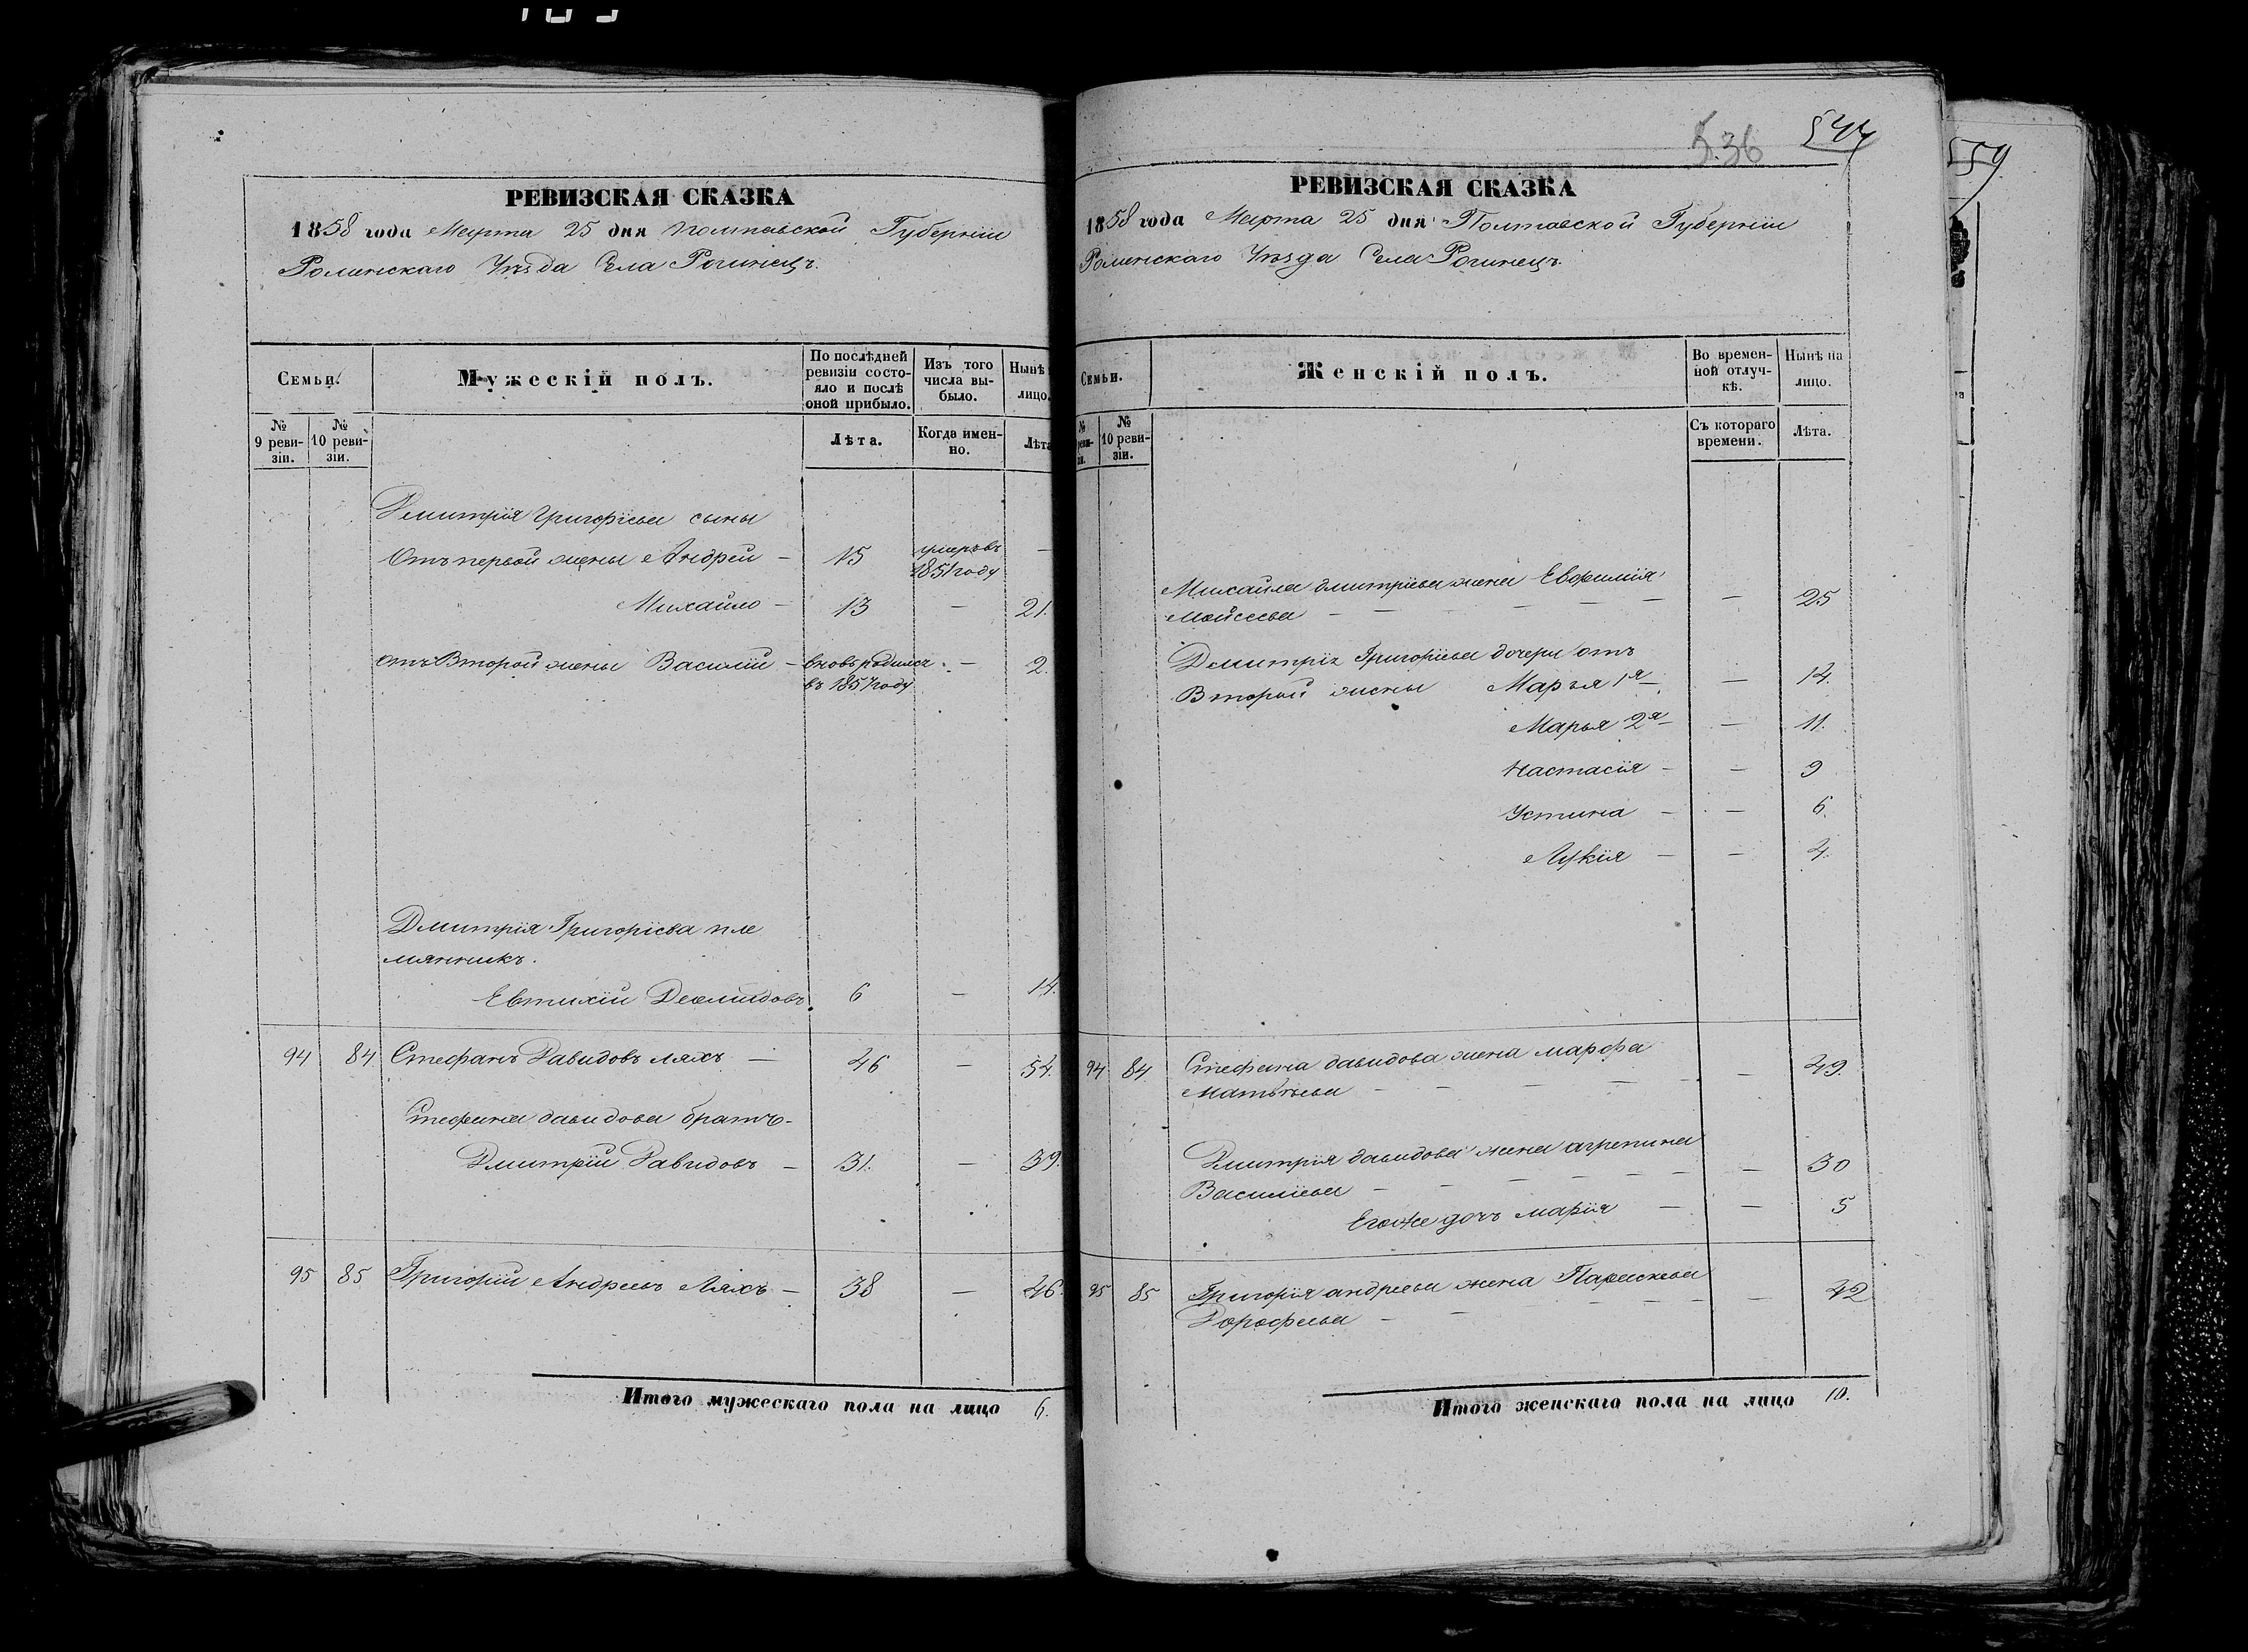 РЕВИЗСКАЯ СКАЗКА
1858 года Марта 25 дня Полтавской Губерніи
Роменскаго Уѣзда Села Рогинецъ.
Семьи.
Мужескій полъ.
По послѣдней ревизіи состояло и послѣ оной прибыло.
Изъ того числа выбыло.
Нынѣ
лицо.
№ 9 ревизіи.
№ 10 ревизіи.
Лѣта.
Когда именно.
Лѣта
Дмитрія Григорьева сыны
Отъ первой жены Андрей — 15 умеръ въ 1851 году —
Михайло — 13 — 21.
отъ Второй жены Василій — вновь родился въ 1857 году — 2.
Дмитрія Григоріева пле
мянникъ.
Евтихій Демидовъ 6 — 14.
94 84 Стефанъ Давидовъ Ляхъ — 46 — 54.
Стефана давидова братъ-
Дмитрій Давидовъ — 31. — 39.
95 85 Григорій Андреевъ Ляхъ — 38 — 46.
Итого мужескаго пола на лицо 6.
536 544
РЕВИЗСКАЯ СКАЗКА
1858 года Марта 25 дня Полтавской Губерніи
Роменскаго Уѣзда Села Рогинецъ.
Семьи.
Женскій полъ.
Во временной отлучкѣ.
Нынѣ на лицо.
№ 10 ревизіи.
Съ котораго времени.
Лѣта.
Михайла дмитріева жена Евфимія
Мойсеева — — — — — — 25
Дмитрія Григоріева дочери отъ
Второй жены Марья 1я — — 14.
Марья 2я — — 11.
Настасія — — 9
Устина — — 6.
Лукія — — 4.
94 84 Стефана давидова жена марфа
Матвѣева — — — — — 49.
Дмитрія давидова жена агрепина
Василіева — — — — — — 30
Егоже дочь марія — — 5
95 85 Григорія андреева жена Параскева
Дорофеева — — — — — — 42
Итого женскаго пола на лицо 10.
559